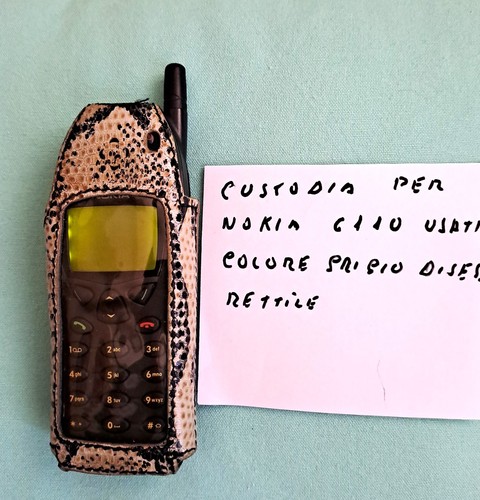 NOKIA
1
2 abc
3 def
4 ghi
5 jkl
6 mno
7 pqrs
8 tuv
9 wxyz
* 
0
#
CUSTODIA PER
NOKIA 6110 USAT
COLORE GRIGIO DISE
RETTILE